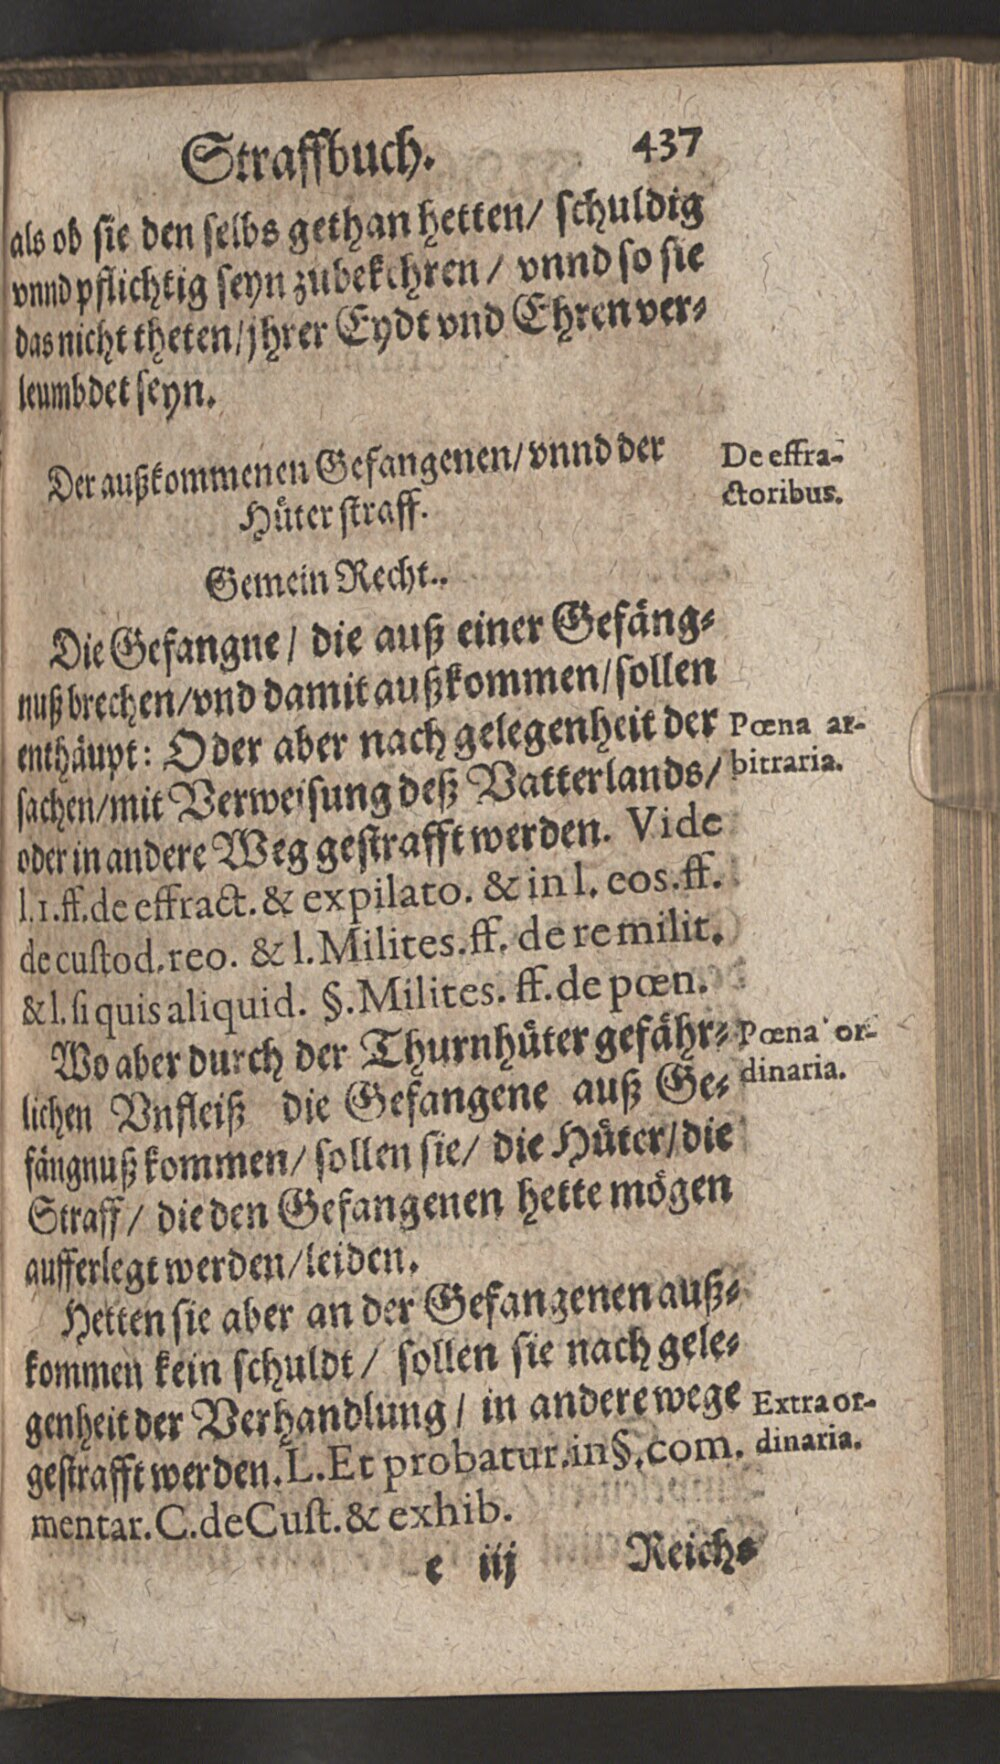 Straffbuch. 437
als ob sie den selbs gethan hetten/ schuldig
vnnd pflichtig seyn zubekehren / vnnd so sie
das nicht theten/ jhrer Eydt vnd Ehren ver-
leumbdet seyn.
Der außkommenen Gefangenen/ vnnd der
Hüter straff.
De effra-
ctoribus.
Gemein Recht..
Die Gefangne / die auß einer Gefäng-
nuß brechen/ vnd damit außkommen/ sollen
enthäupt: Oder aber nach gelegenheit der
sachen/ mit Verweisung deß Vatterlands/
oder in andere Weg gestrafft werden. Vide
l.1.ff.de effract. & expilato. & in l. eos.ff.
de custod.reo. & l. Milites.ff. de re milit.
& l. si quis aliquid. §. Milites. ff.de pœn.
Pœna ar-
bitraria.
Wo aber durch der Thurnhüter gefähr-
lichen Vnfleiß die Gefangene auß Ge-
fängnuß kommen/ sollen sie/ die Hüter/ die
Straff/ die den Gefangenen hette mögen
aufferlegt werden/ leiden.
Pœna or-
dinaria.
Hetten sie aber an der Gefangenen auß-
kommen kein schuldt/ sollen sie nach gele-
genheit der Verhandlung / in andere wege
gestrafft werden. L. Et probatur.in §. com.
mentar. C. de Cust. & exhib.
Extraor-
dinaria.
e iij Reichs